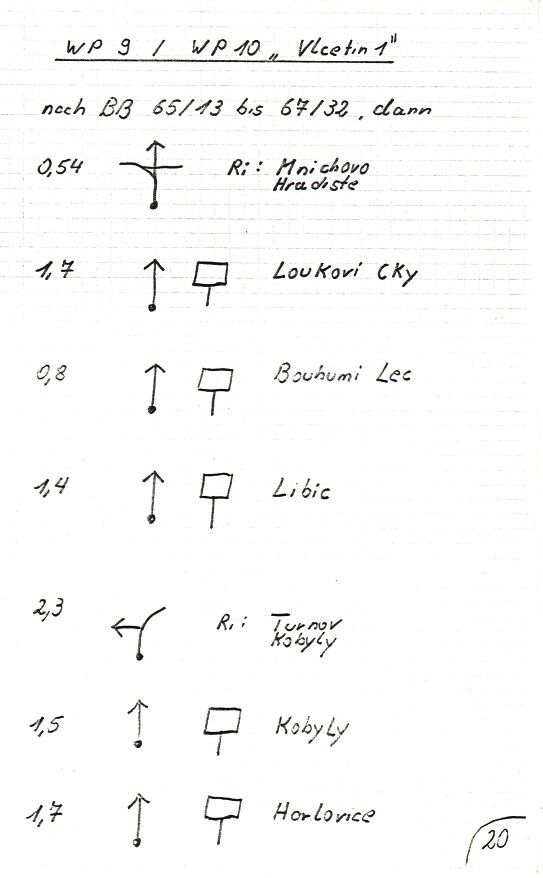 WP 9 / WP 10 „Vlcetin 1"
nach BB 65/13 bis 67/32, dann
0,54 Ri: Mnichovo
Hradiste
1,7 Loukovi Cky
0,8 Bouhumi Lec
1,4 Libic
2,3 Ri: Turnov
Kobyly
1,5 Kobyly
1,7 Horlovice
20